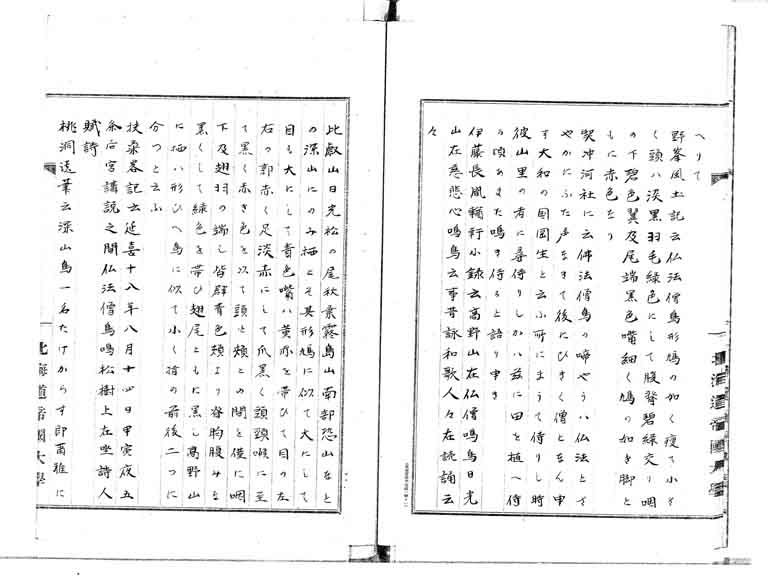 へりて
野峯風土記云仏法僧鳥形鳩の如く痩て小さ
く頭ハ淡黒羽毛緑色にして腹脊碧緑交り咽
の下碧色翼及尾端黒色嘴細く鳩の如き脚と
もに赤色なり
契冲河社に云佛法僧鳥の啼やうハ仏法とさ
やかにふた声なきて後にひきく僧となん申
す大和の国岡生と云ふ所にまうて侍りし時
彼山里の者に尋侍りしかハ茲に田を植へ侍
の頃あまた鳴き侍ると語り申き
伊藤長胤輶軒小録云高野山在仏僧鳴鳥日光
山在慈悲心鳴鳥云事昔詠和歌人々在読誦云
々
比叡山日光松の尾秋葉霧島山南部恐山なと
の深山にのみ栖とそ其形鳩に似て大にして
目も大にして青色嘴ハ黄赤を帯ひて目の左
右の郭赤く足淡赤にして爪黒く頭頚喉に至
て黒く赤き色を以て頭と頬との間を優に咽
下及翅羽の端し皆群青色頬より脊胸腹みな
黒くして緑色を帯ひ翅尾ともに黒し高野山
に栖ハ形ひへ鳥に似て小く指の前後二つに
分つと云ふ
扶桑畧記云延喜十八年八月十四日甲寅夜五
条后宮講説之間仏法僧鳥鳴松樹上在坐詩人
賦詩
桃洞遺筆云深山鳥一名たけからす即爾雅に
北海道帝國大學
北海道帝國大學